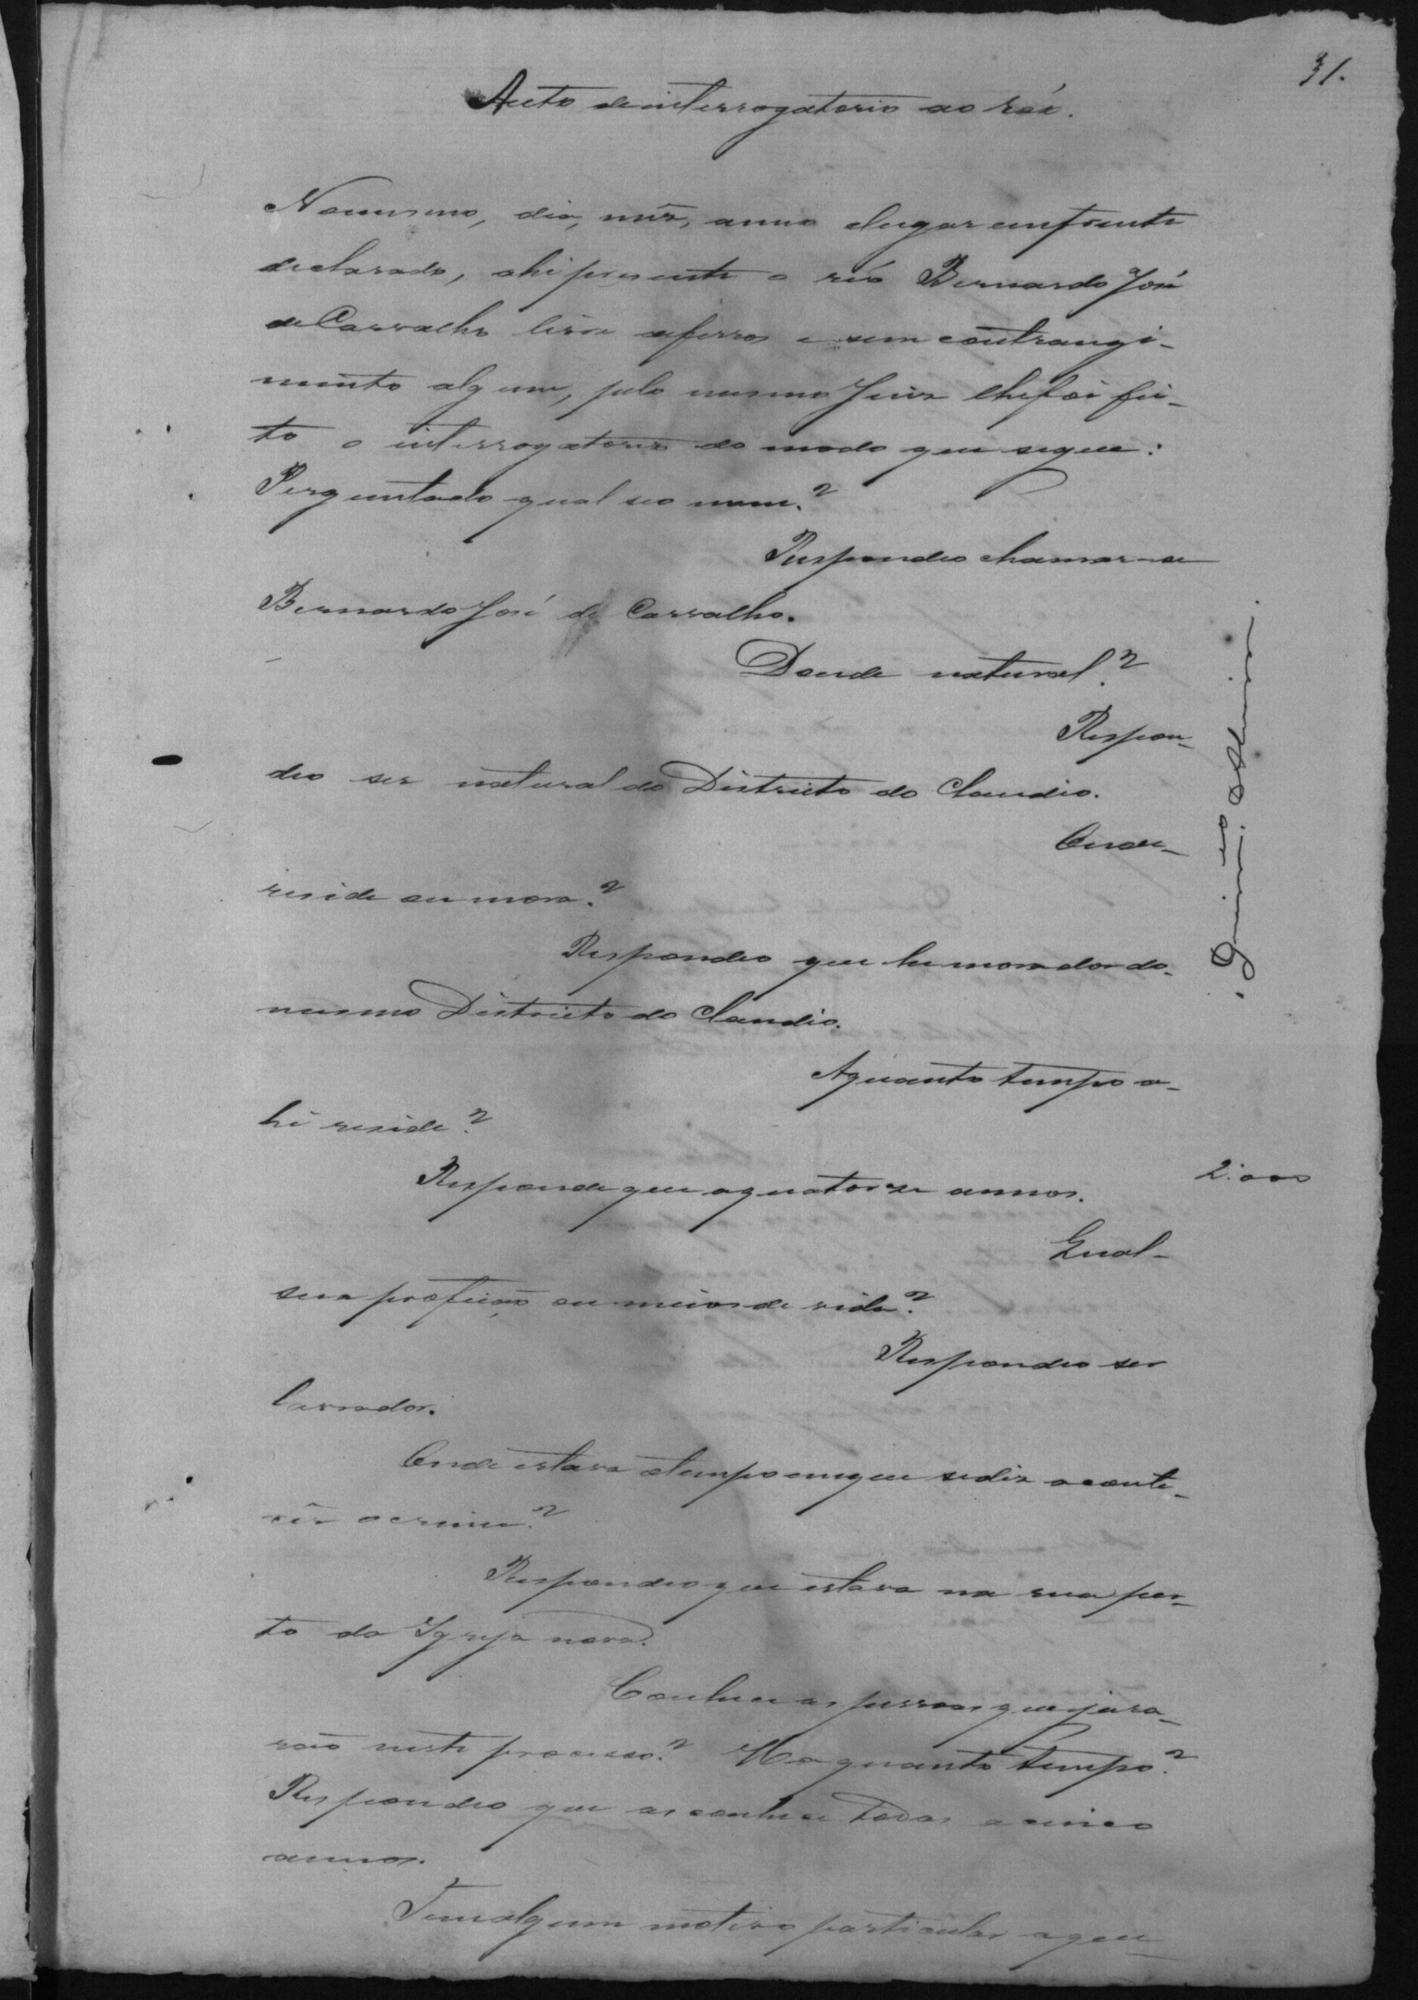 31.
Auto de interrogatorio ao réo.
No mesmo, dia, mêz, anno e lugar em frente
declarado, ahi presente o reó Bernardo José
de Carvalho livre de ferros e sem contrangi-
mento algum, pelo mesmo Juiz lhe foi fei-
to o interrogatorio do modo que segue:
Perguntado qual seo nome?
Respondeo chamar-se
Bernardo José de Carvalho.
Donde natural?
Respon-
deo ser natural do Districto do Claudio.
Onde-
reside ou mora?
Respondeo que he morador do-
mesmo Districto do Claudio.
Aquanto tempo a-
hi reside?
Responde que aquatorze annos.
2:000
Qual-
sua profição ou meios de vida?
Respondeo ser
lavrador.
Onde estava a tempo em que se diz aconte-
cêr o crime?
Respondeo que estava na rua per-
to da Igreja nova.
Conhece as pessoas que jura-
raõ neste processo? Ha quanto tempo?
Respondeo que as conhece todas a cinco
annos.
Tem algum motivo particular a que